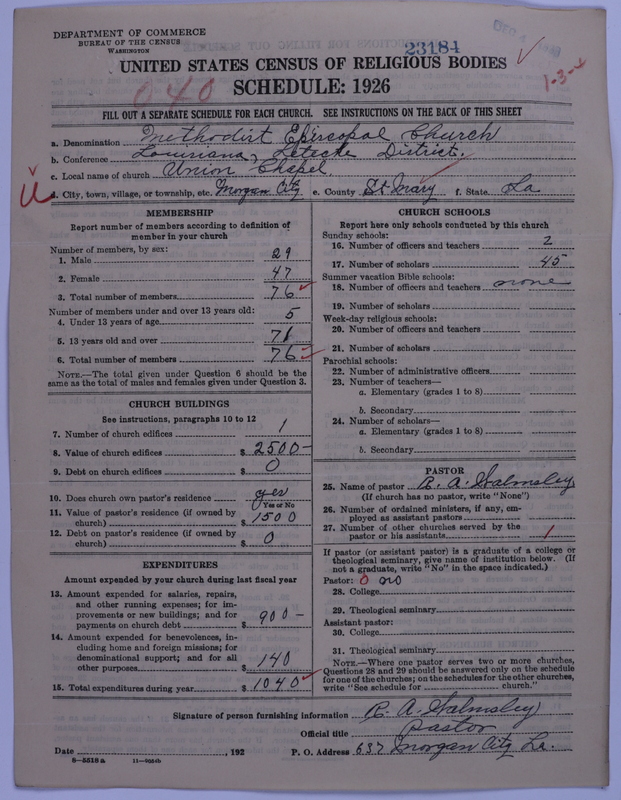 DEPARTMENT OF COMMERCE
BUREAU OF THE CENSUS
WASHINGTON
23184
UNITED STATES CENSUS OF RELIGIOUS BODIES
SCHEDULE: 1926
1-3-4
040
FILL OUT A SEPARATE SCHEDULE FOR EACH CHURCH. SEE INSTRUCTIONS ON THE BACK OF THIS SHEET
a. Denomination Methodist Episcopal Church
b. Conference Louisiana, Leteche District.
c. Local name of church Union Chapel
d. City, town, village, or township, etc. Morgan City e. County St Mary f. State La
MEMBERSHIP
Report number of members according to definition of
member in your church
Number of members, by sex:
1. Male 29
2. Female 47
3. Total number of members 76
Number of members under and over 13 years old:
4. Under 13 years of age 5
5. 13 years old and over 71
6. Total number of members 76
NOTE.—The total given under Question 6 should be
same as the total of males and females given under Question 3.
CHURCH BUILDINGS
See instructions, paragraphs 10 to 12
7. Number of church edifices 1
8. Value of church edifices $ 2500—
9. Debt on church edifices $ 0
10. Does church own pastor's residence yes
Yes or No
11. Value of pastor's residence (if owned by
church) $ 1500
12. Debt on pastor's residence (if owned by
church) $ 0
EXPENDITURES
Amount expended by your church during last fiscal year
13. Amount expended for salaries, repairs,
and other running expenses; for im-
provements or new buildings; and for
payments on church debt $ 900—
14. Amount expended for benevolences, in-
cluding home and foreign missions; for
denominational support; and for all
other purposes $ 140
15. Total expenditures during year $ 1040
CHURCH SCHOOLS
Report here only schools conducted by this church
Sunday schools:
16. Number of officers and teachers 2
17. Number of scholars 45
Summer vacation Bible schools:
18. Number of officers and teachers none
19. Number of scholars
Week-day religious schools:
20. Number of officers and teachers
21. Number of scholars
Parochial schools:
22. Number of administrative officers
23. Number of teachers—
a. Elementary (grades 1 to 8)
b. Secondary
24. Number of scholars—
a. Elementary (grades 1 to 8)
b. Secondary
PASTOR
25. Name of pastor R. A. Walmsley
(If church has no pastor, write "None")
26. Number of ordained ministers, if any, em-
ployed as assistant pastors
27. Number of other churches served by the
pastor or his assistants 1
If pastor (or assistant pastor) is a graduate of a college or
theological seminary, give name of institution below. (If
not a graduate, write "No" in the space indicated.)
Pastor: 0 no
28. College
29. Theological seminary
Assistant pastor:
30. College
31. Theological seminary
NOTE.—Where one pastor serves two or more churches,
Questions 28 and 29 should be answered only on the schedule
for one of the churches; on the schedules for the other churches,
write "See schedule for church."
Signature of person furnishing information R. A. Walmsley
Official title Pastor
Date , 192 P. O. Address 637 Morgan City La.
8—5518a 11—9054b